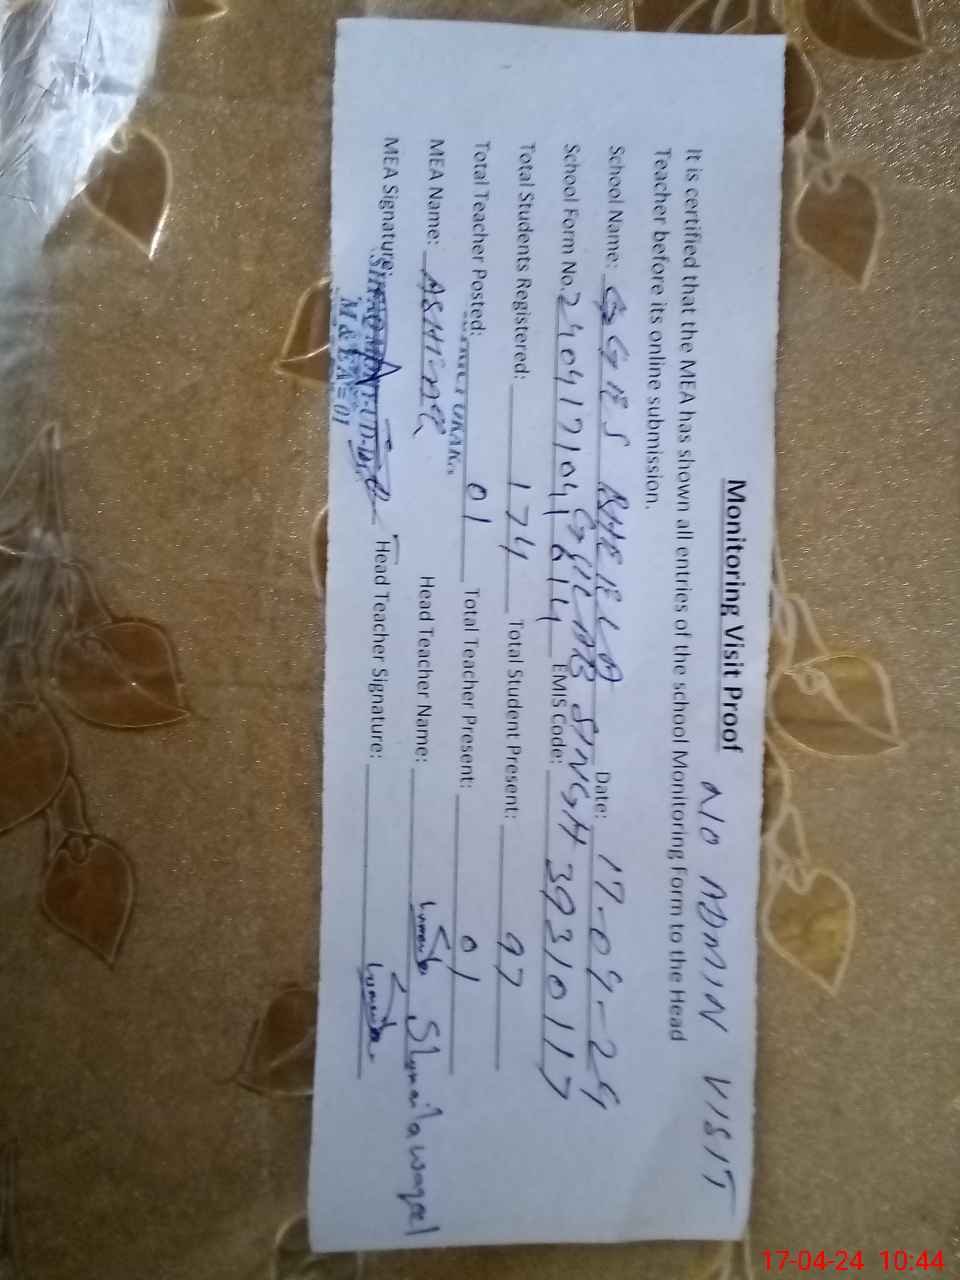 Monitoring Visit Proof NO ADMIN VISIT
It is certified that the MEA has shown all entries of the school Monitoring Form to the Head
Teacher before its online submission.
School Name: GGES BHEELO GULAB SINGH Date: 17-04-24
School Form No. EMIS Code: 39310117
Total Students Registered: 174 Total Student Present: 97
Total Teacher Posted: 01 Total Teacher Present: 01
MEA Name: Head Teacher Name: Shumaila
MEA Signature: Head Teacher Signature:
M & EA = 01
17-04-24 10:44